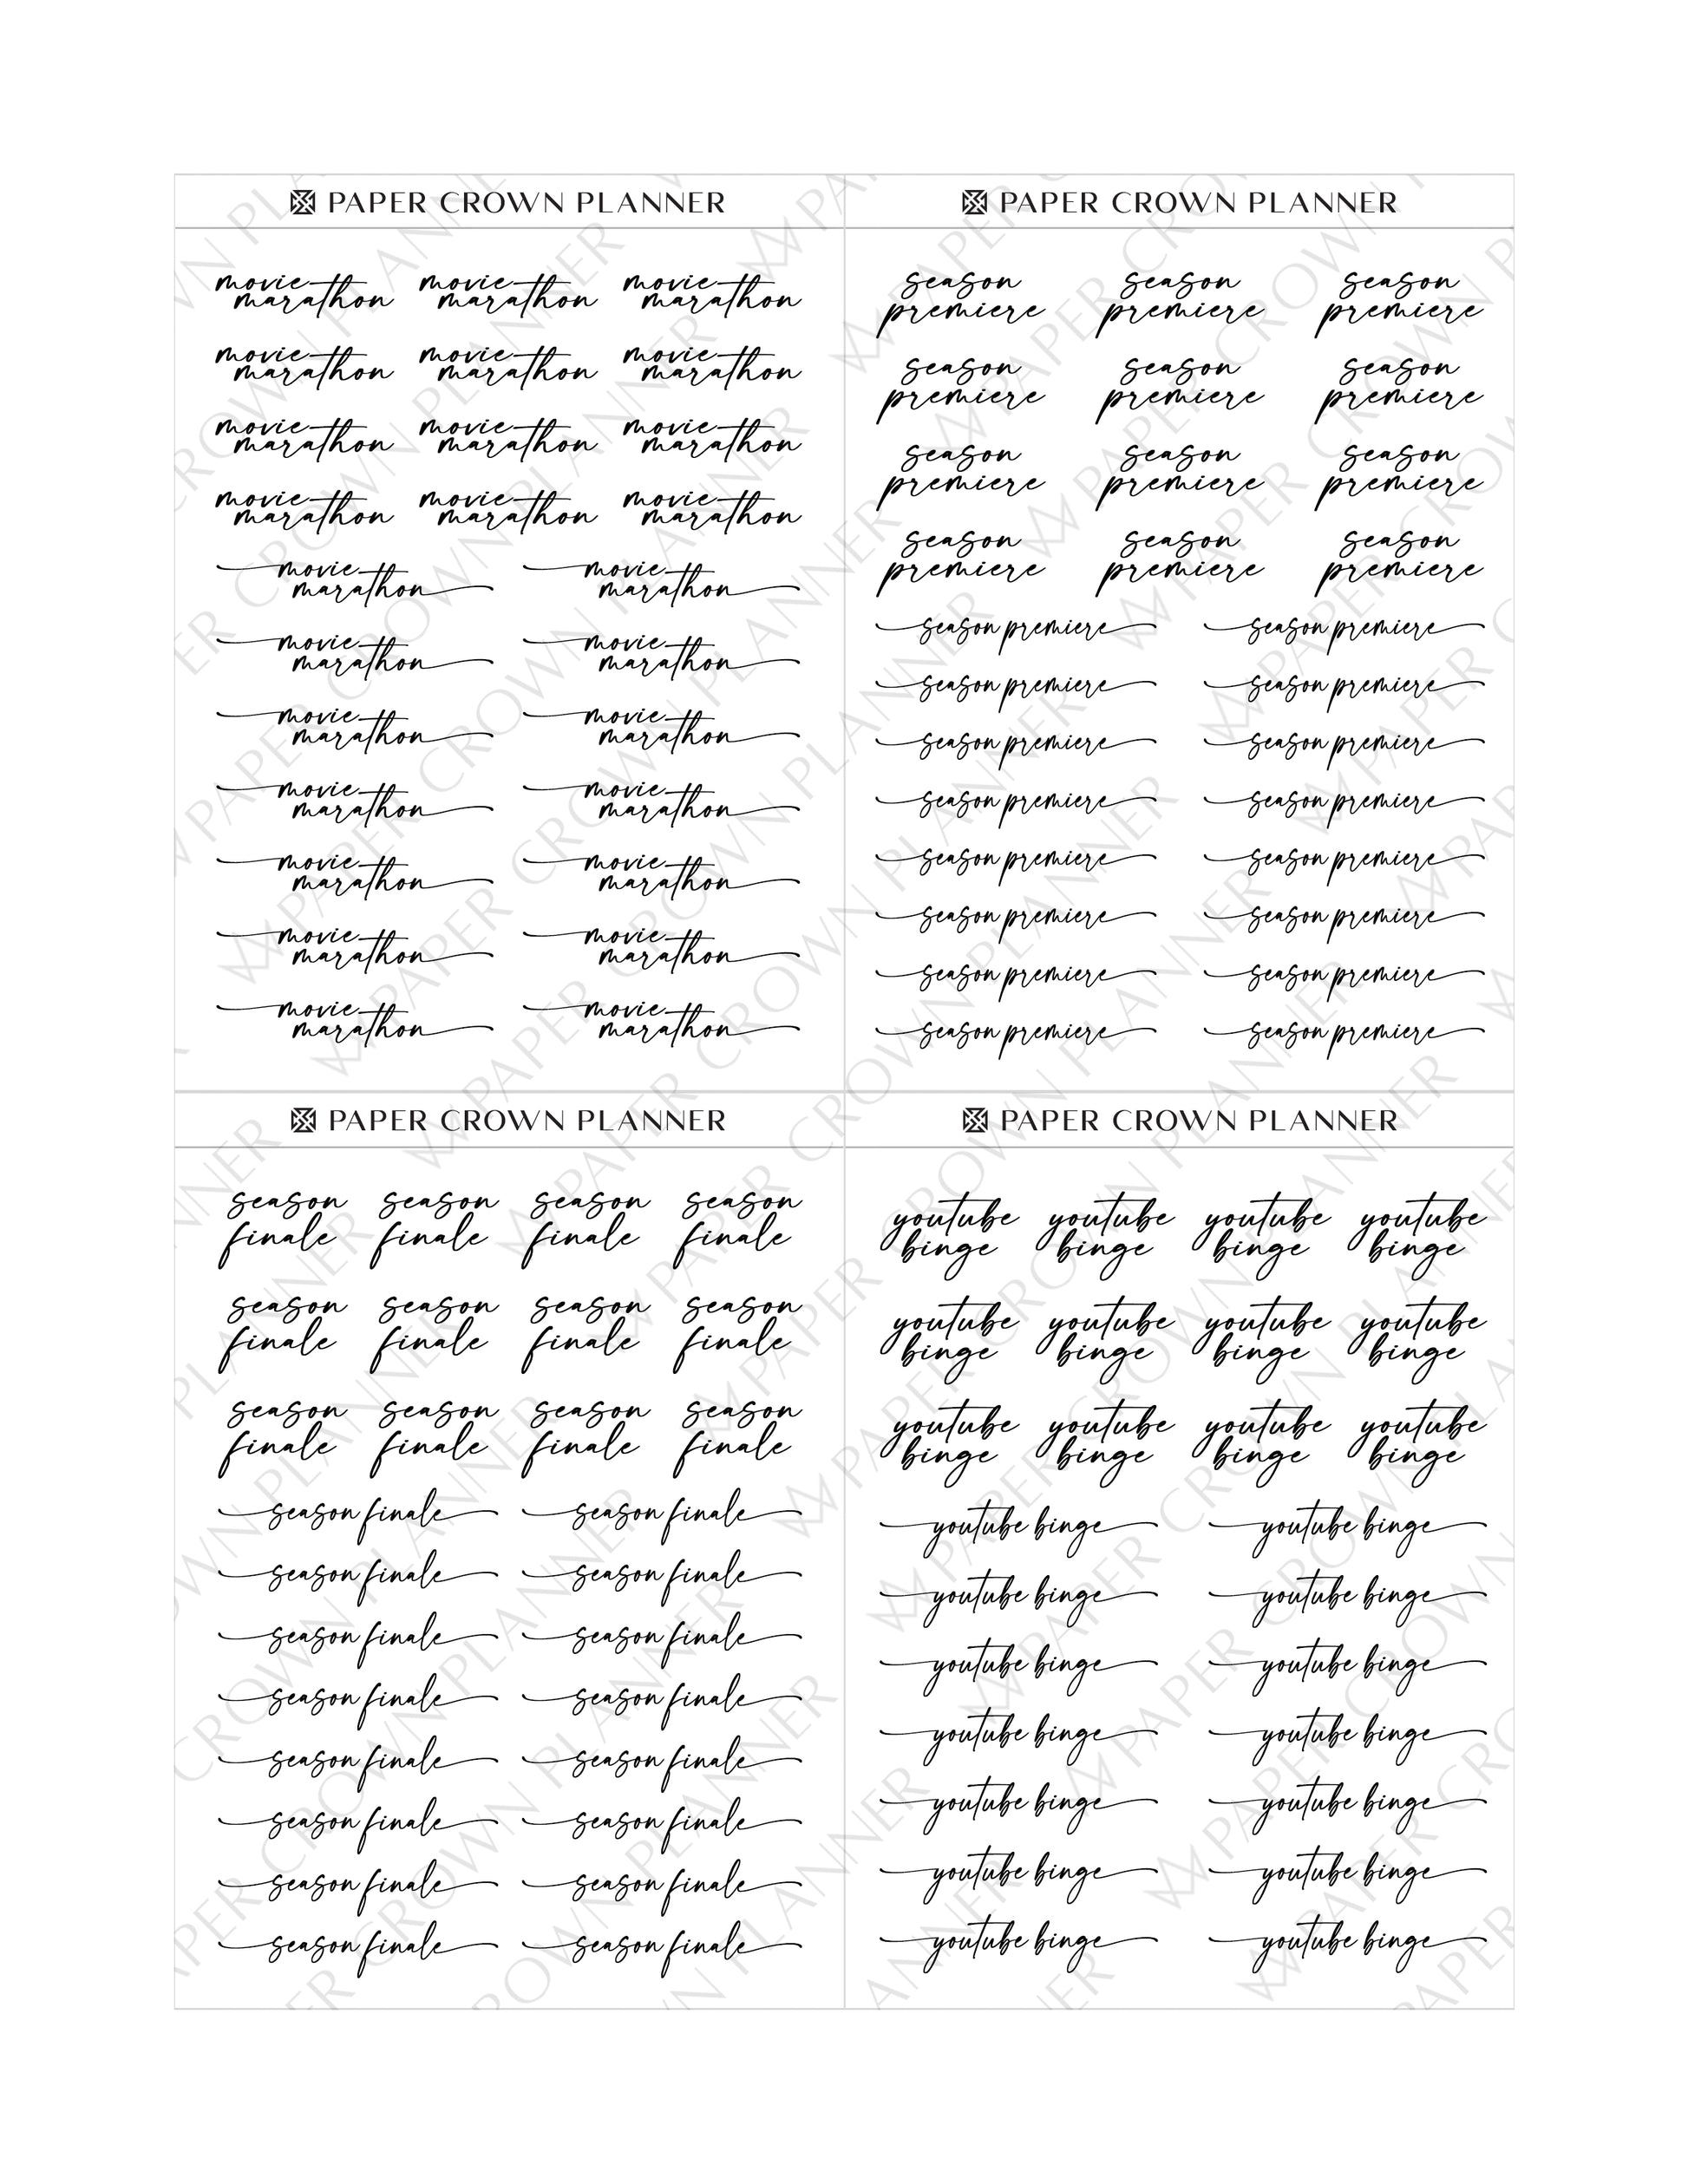 PAPER CROWN PLANNER
movie marathon movie marathon movie marathon
movie marathon movie marathon movie marathon
movie marathon movie marathon movie marathon
movie marathon movie marathon movie marathon
movie marathon movie marathon
movie marathon movie marathon
movie marathon movie marathon
movie marathon movie marathon
movie marathon movie marathon
movie marathon movie marathon
movie marathon movie marathon
PAPER CROWN PLANNER
season season season
premiere premiere premiere
season season season
premiere premiere premiere
season season season
premiere premiere premiere
season season season
premiere premiere premiere
season premiere season premiere
season premiere season premiere
season premiere season premiere
season premiere season premiere
season premiere season premiere
season premiere season premiere
season premiere season premiere
season premiere season premiere
PAPER CROWN PLANNER
season season season season
finale finale finale finale
season season season season
finale finale finale finale
season season season season
finale finale finale finale
season finale season finale
season finale season finale
season finale season finale
season finale season finale
season finale season finale
season finale season finale
season finale season finale
season finale season finale
PAPER CROWN PLANNER
youtube youtube youtube youtube
binge binge binge binge
youtube youtube youtube youtube
binge binge binge binge
youtube youtube youtube youtube
binge binge binge binge
youtube binge youtube binge
youtube binge youtube binge
youtube binge youtube binge
youtube binge youtube binge
youtube binge youtube binge
youtube binge youtube binge
youtube binge youtube binge